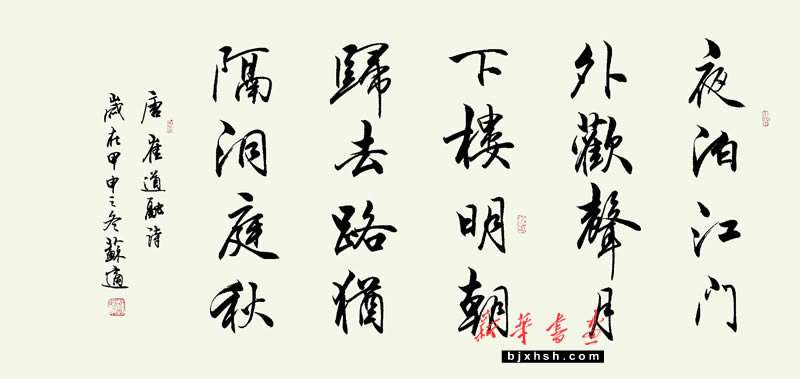 夜泊江门
外歡聲月
下樓明朝
歸去路猶
隔洞庭秋
唐崔道融诗
歲在甲申之冬蘇適
新華書畫
bjxhsh.com